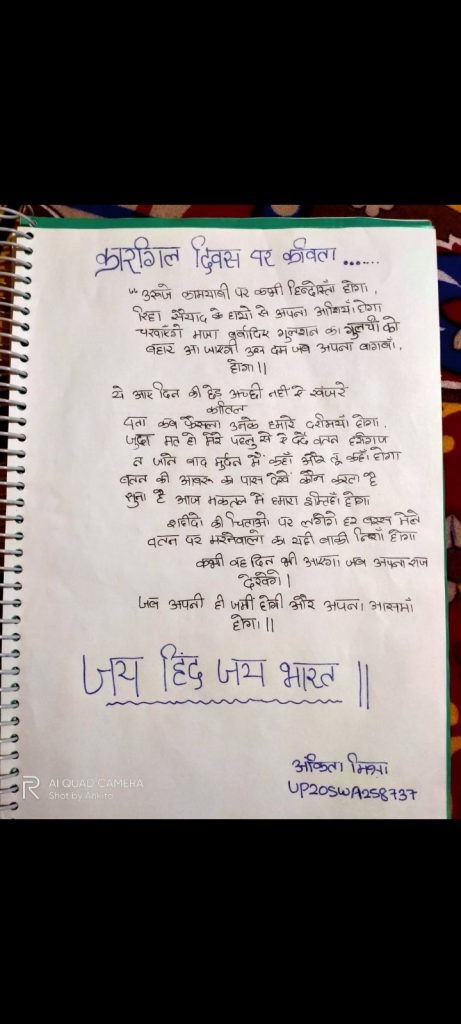 कारगिल दिवस पर कविता.......
"उरूजे कामयाबी पर कभी हिन्दोस्ताँ होगा,
रिहा सैयाद के हाथो से अपना आशियाँ होगा
चखाएंगे मजा बर्बादिए गुलशन का गुलची को
बहार आ जाएगी उस दम जब अपना बागवाँ,
होगा।।
ये आए दिन की छेड़ अच्छी नही से खंजरे
कातिल
पता कब फैसला उनके हमारे दरमियाँ होगा,
जुदा मत हो मेरे पहलु से ऐ दर्दे वतन हरगिज
न जाने बाद मुर्दन मैं कहाँ और तू कहाँ होगा
वतन की आबरू का पास देखें कौन करता है
सुना है आज मकतल मे हमारा इम्तिहाँ होगा
शहीदो की चिताओ पर लगेगे हर बरस मेले
वतन पर मरनेवालो का यही बाकी निशाँ होगा
कभी वह दिन भी आएगा जब अपना राज
देखेंगे।
जब अपनी ही जमी होगी और अपना आसमाँ
होगा।।
जय हिंद जय भारत ||
अंकिता मिश्रा
UP20SWA258737
AI QUAD CAMERA
Shot by Ankita